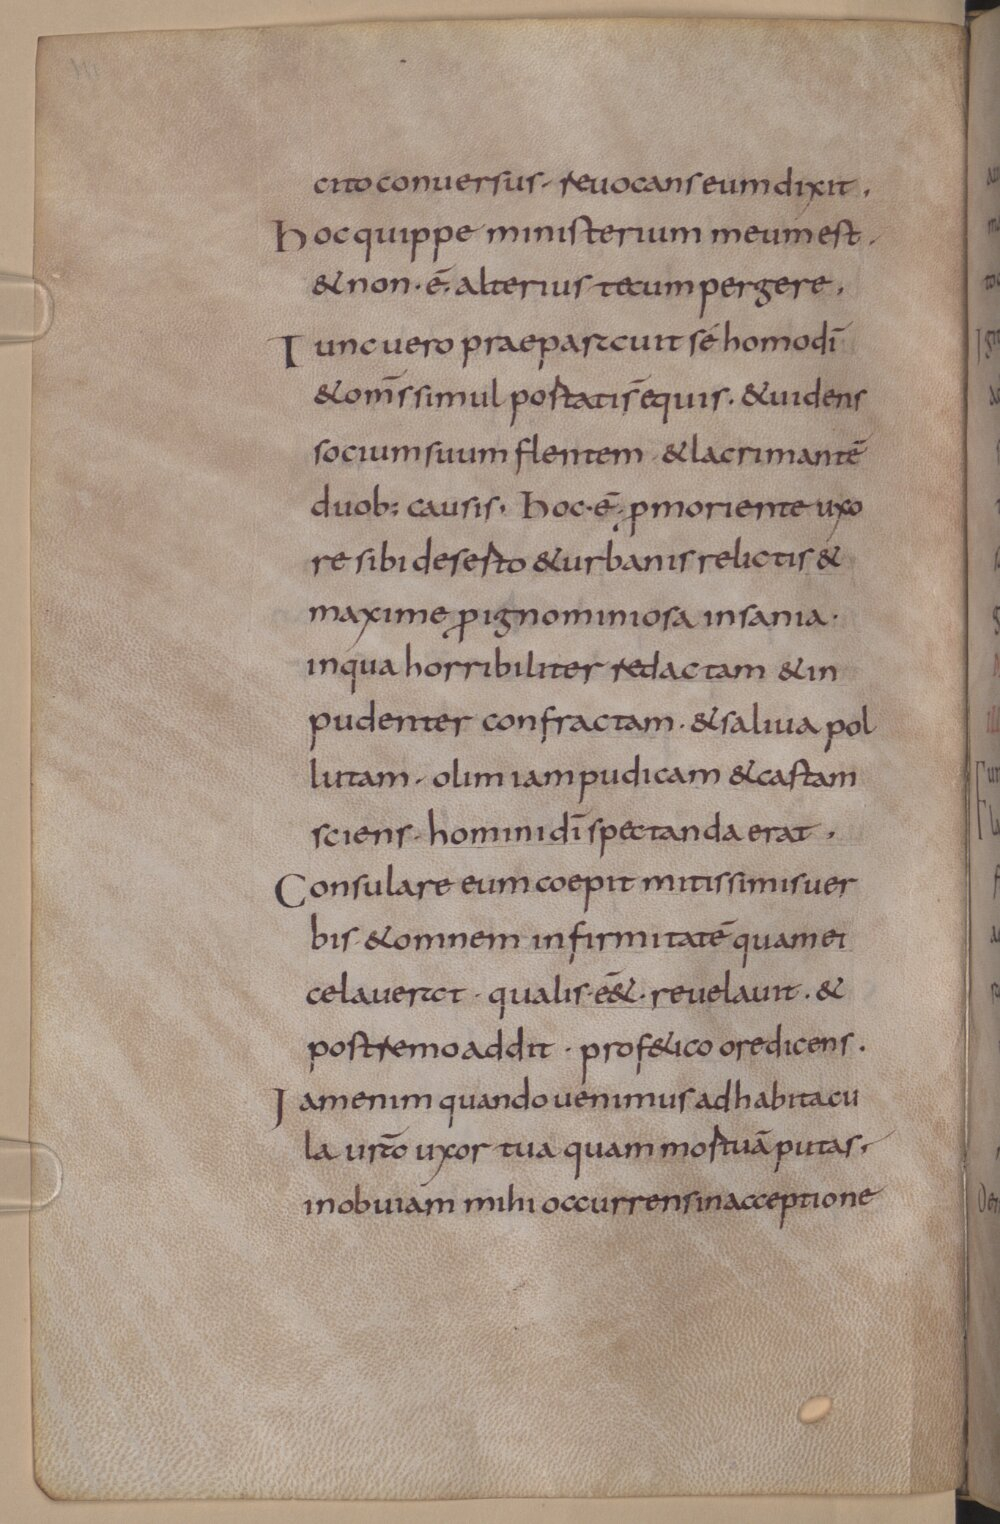 cito conuersus · reuocans eum dixit .
Hoc quippe ministerium meum est .
& non · ē · alterius tecum pergere .
Tunc uero praeparauit sé homo dī
& om̄s simul portatis equis · & uidens
socium suum flentem & lacrimantē
duob; causis · hoc · ē · ꝓ moriente uxo
re sibi deserto & urbanis relictis &
maxime ꝓ ignominiosa insania ·
in qua horribiliter redactam & in
pudenter confractam · & saliua pol
lutam · olim iam pudicam & castam
sciens · homini dī spectanda erat .
Consulare eum coepit mitissimis uer
bis & omnem infirmitatē quam ei
celauerat · qualis · ēēt · reuelauit · &
postremo addit · profetico ore dicens .
Iam enim quando uenimus ad habitacu
la ur̄o uxor tua quam mortuā putas ·
in obuiam mihi occurrens in acceptione